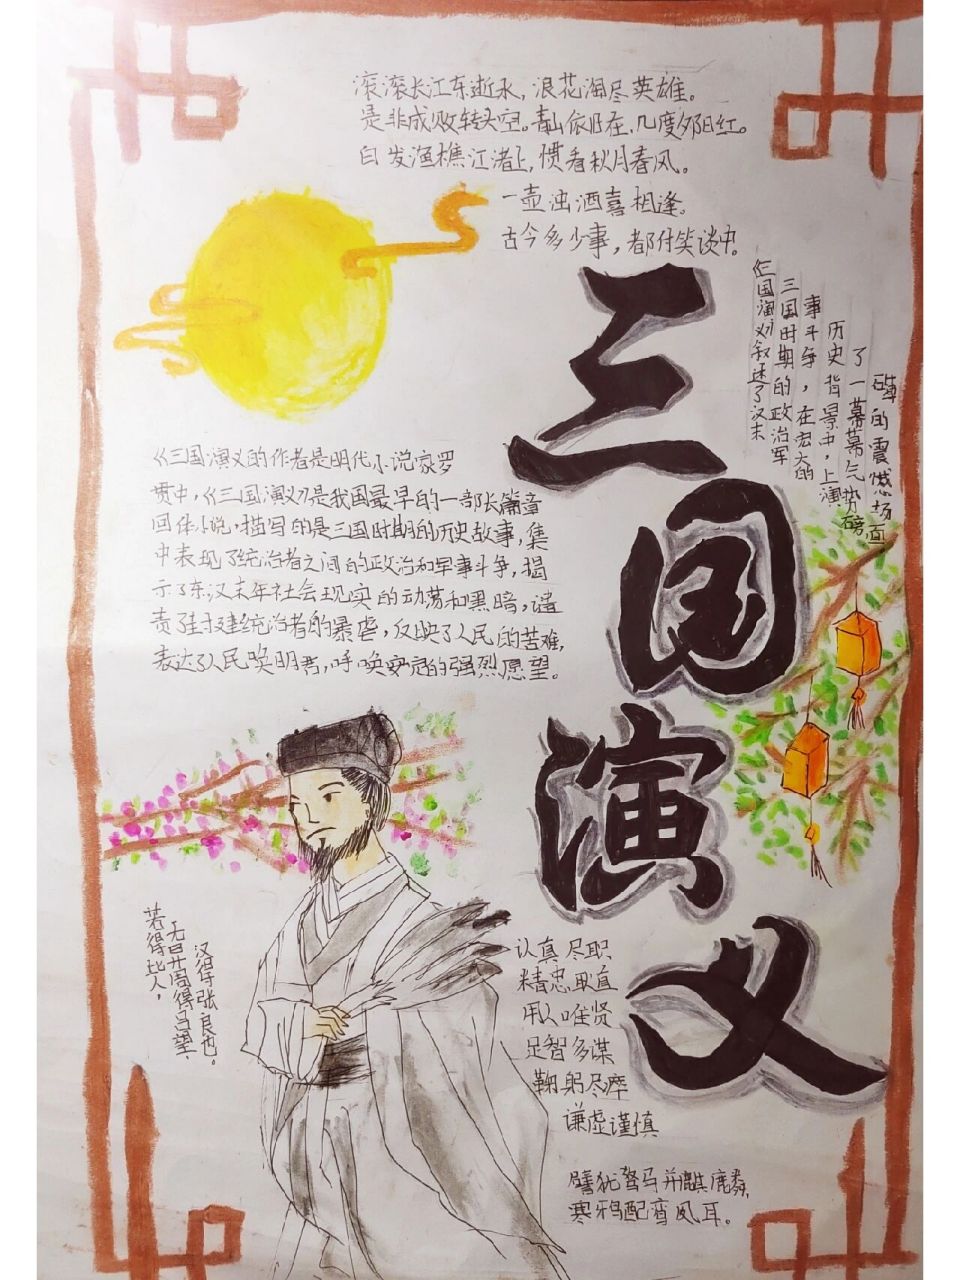 滚滚长江东逝水，浪花淘尽英雄。
是非成败转头空。青山依旧在，几度夕阳红。
白发渔樵江渚上，惯看秋月春风。
一壶浊酒喜相逢。
古今多少事，都付笑谈中。
三国演义
《三国演义叙述了汉末
三国时期的政治军
事斗争，在宏大的
历史背景中，上演
了一幕幕气势磅
礴的震憾场面
《三国演义的作者是明代小说家罗
贯中，《三国演义》是我国最早的一部长篇章
回体小说，描写的是三国时期的历史故事，集
中表现了统治者之间的政治和军事斗争，揭
示了东汉末年社会现实的动荡和黑暗，谴
责了封建统治者的暴虐，反映了人民的苦难，
表达了人民唤明君，呼唤安定的强烈愿望。
若得比人，
无异周得吕望，
汉得张良也。
认真尽职
精忠耿直
用人唯贤
足智多谋
鞠躬尽瘁
谦虚谨慎
譬犹驽马并麒麟，
寒鸦配鸾凤耳。